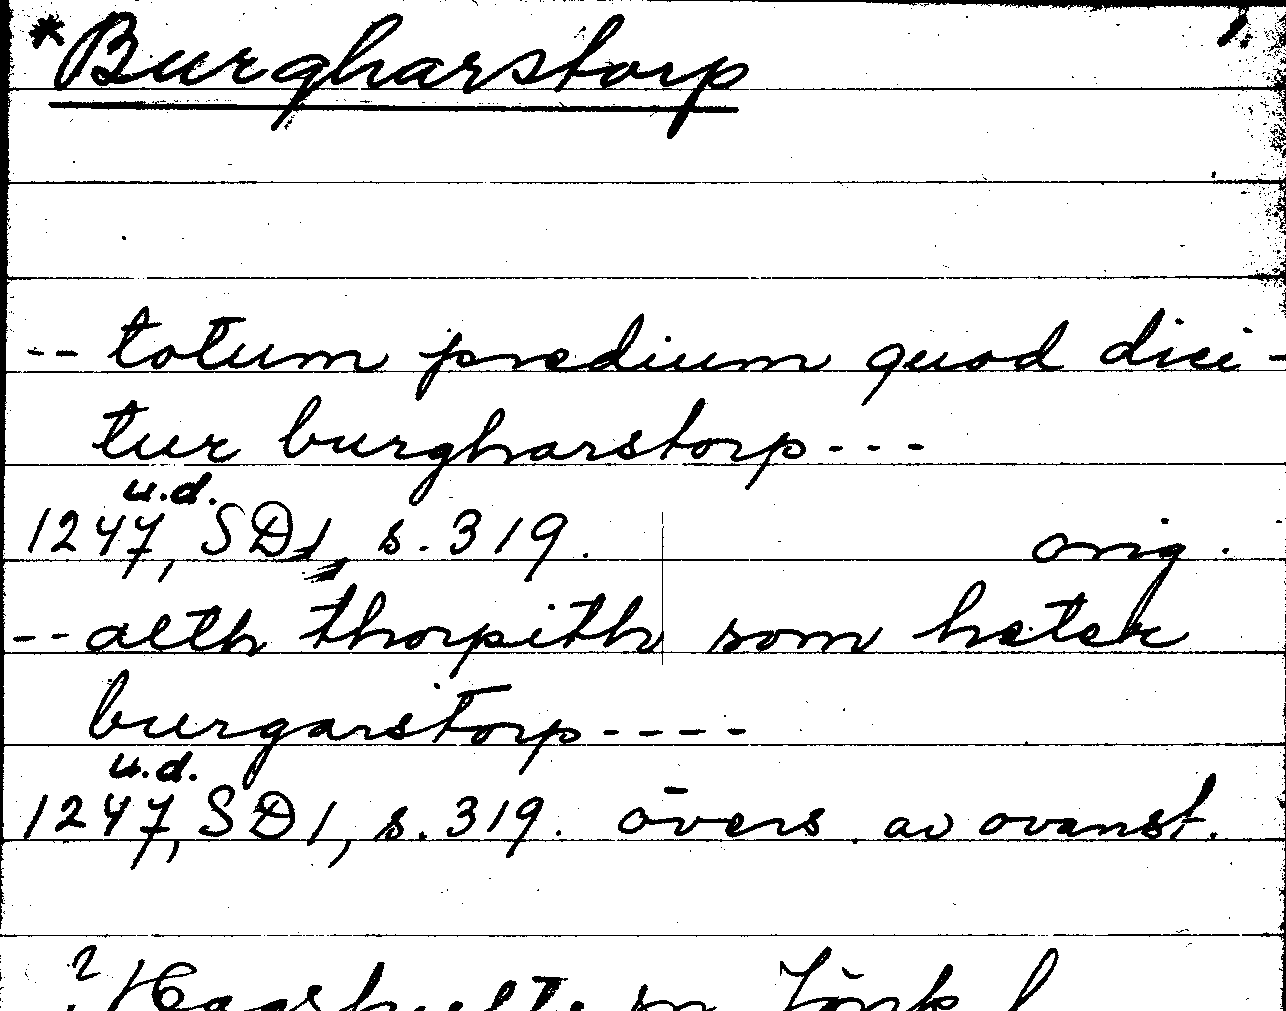 *Burgharstorp 1.
-- totum predium quod dici-
tur burgharstorp - - -
u.d.
1247, SD1, s. 319. orig.
-- alth thorpith som heter
burgarstorp - - - -
u.d.
1247, SD1, s. 319. övers. av ovanst.
? sn Jönk l